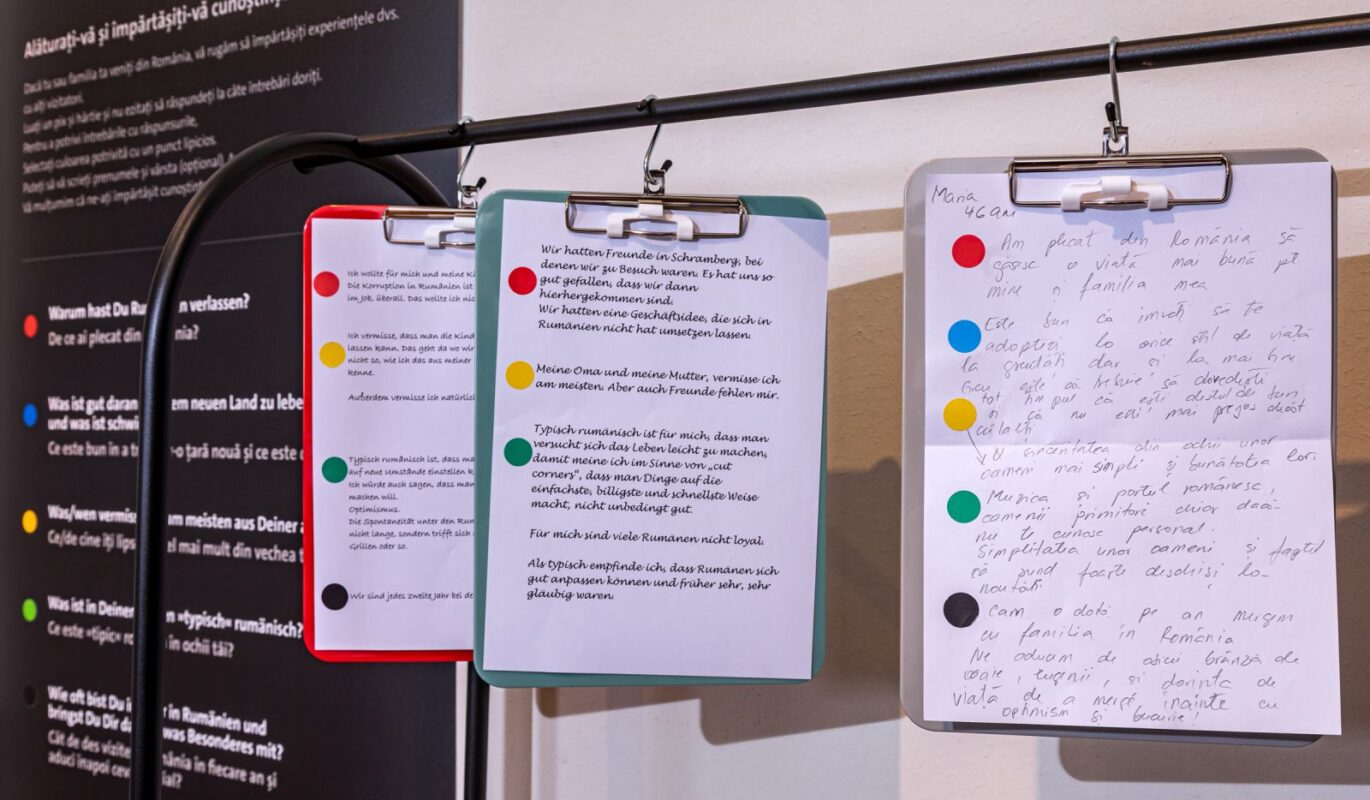 Alăturați-vă și împărtășiți-vă
Dacă tu sau familia ta veniți din România, vă rugăm să împărtășiți experiențele dvs.
cu alți vizitatori.
Luați un pix și hârtie și nu ezitați să răspundeți la câte întrebări doriți.
Pentru a potrivi întrebările cu răspunsurile,
Selectați culoarea potrivită cu un punct lipicios.
Puteți să vă scrieți prenumele și vârsta (opțional).
Vă mulțumim că ne-ați împărtășit
Warum hast Du verlassen?
De ce ai plecat din
Was ist gut daran neuen Land zu
und was ist
Ce este bun în a țară nouă și ce este
Was/wen am meisten aus Deiner
Ce/de cine îți mai mult din vechea
Was ist in Deinen »typisch« rumänisch?
Ce este »tipic« în ochii tăi?
Wie oft bist Du in Rumänien und
bringst Du Dir Besonderes mit?
Cât de des în fiecare an și
aduci înapoi
Ich wollte für mich und meine
Die Korruption in Rumänien ist
im Job, überall. Das wollte ich
Ich vermisse, dass man die
lassen kann. Das geht da wo wir
nicht so, wie ich das aus meiner
kenne.
Außerdem vermisse ich
Typisch rumänisch ist, dass
auf neue Umstände einstellen
Ich würde auch sagen, dass man
machen will.
Optimismus.
Die Spontaneität unter den
nicht lange, sondern trifft sich
Grillen oder so.
Wir sind jedes zweite Jahr bei
Wir hatten Freunde in Schramberg, bei
denen wir zu Besuch waren. Es hat uns so
gut gefallen, dass wir dann
hierhergekommen sind.
Wir hatten eine Geschäftsidee, die sich in
Rumänien nicht hat umsetzen lassen.
Meine Oma und meine Mutter, vermisse ich
am meisten. Aber auch Freunde fehlen mir.
Typisch rumänisch ist für mich, dass man
versucht sich das Leben leicht zu machen,
damit meine ich im Sinne von „cut
corners“, dass man Dinge auf die
einfachste, billigste und schnellste Weise
macht, nicht unbedingt gut.
Für mich sind viele Rumänen nicht loyal.
Als typisch empfinde ich, dass Rumänen sich
gut anpassen können und früher sehr, sehr
gläubig waren.
Maria
46 ani
Am plecat din România să
găsesc o viață mai bună pt
mine și familia mea
Este bun că înveți să te
adoptezi la orice stil de viață
la greutăți dar și la mai bine
Greu este că trebuie să dovedești
tot timpul că ești destul de bun
și că nu ești mai prejos decât
ceilalți
sinceritatea din ochii unor
oameni mai simpli și bunătatea lor.
Muzica și portul românesc,
oamenii primitori chiar dacă
nu te cunosc personal.
Simplitatea unor oameni și faptul
că sund foarte deschiși la
noutăți
Cam o dată pe an mergem
cu familia în România
Ne aducem de obicei brânză de
oaie, eugenii, și dorința de
viață de a merge înainte cu
optimism și bucurie!